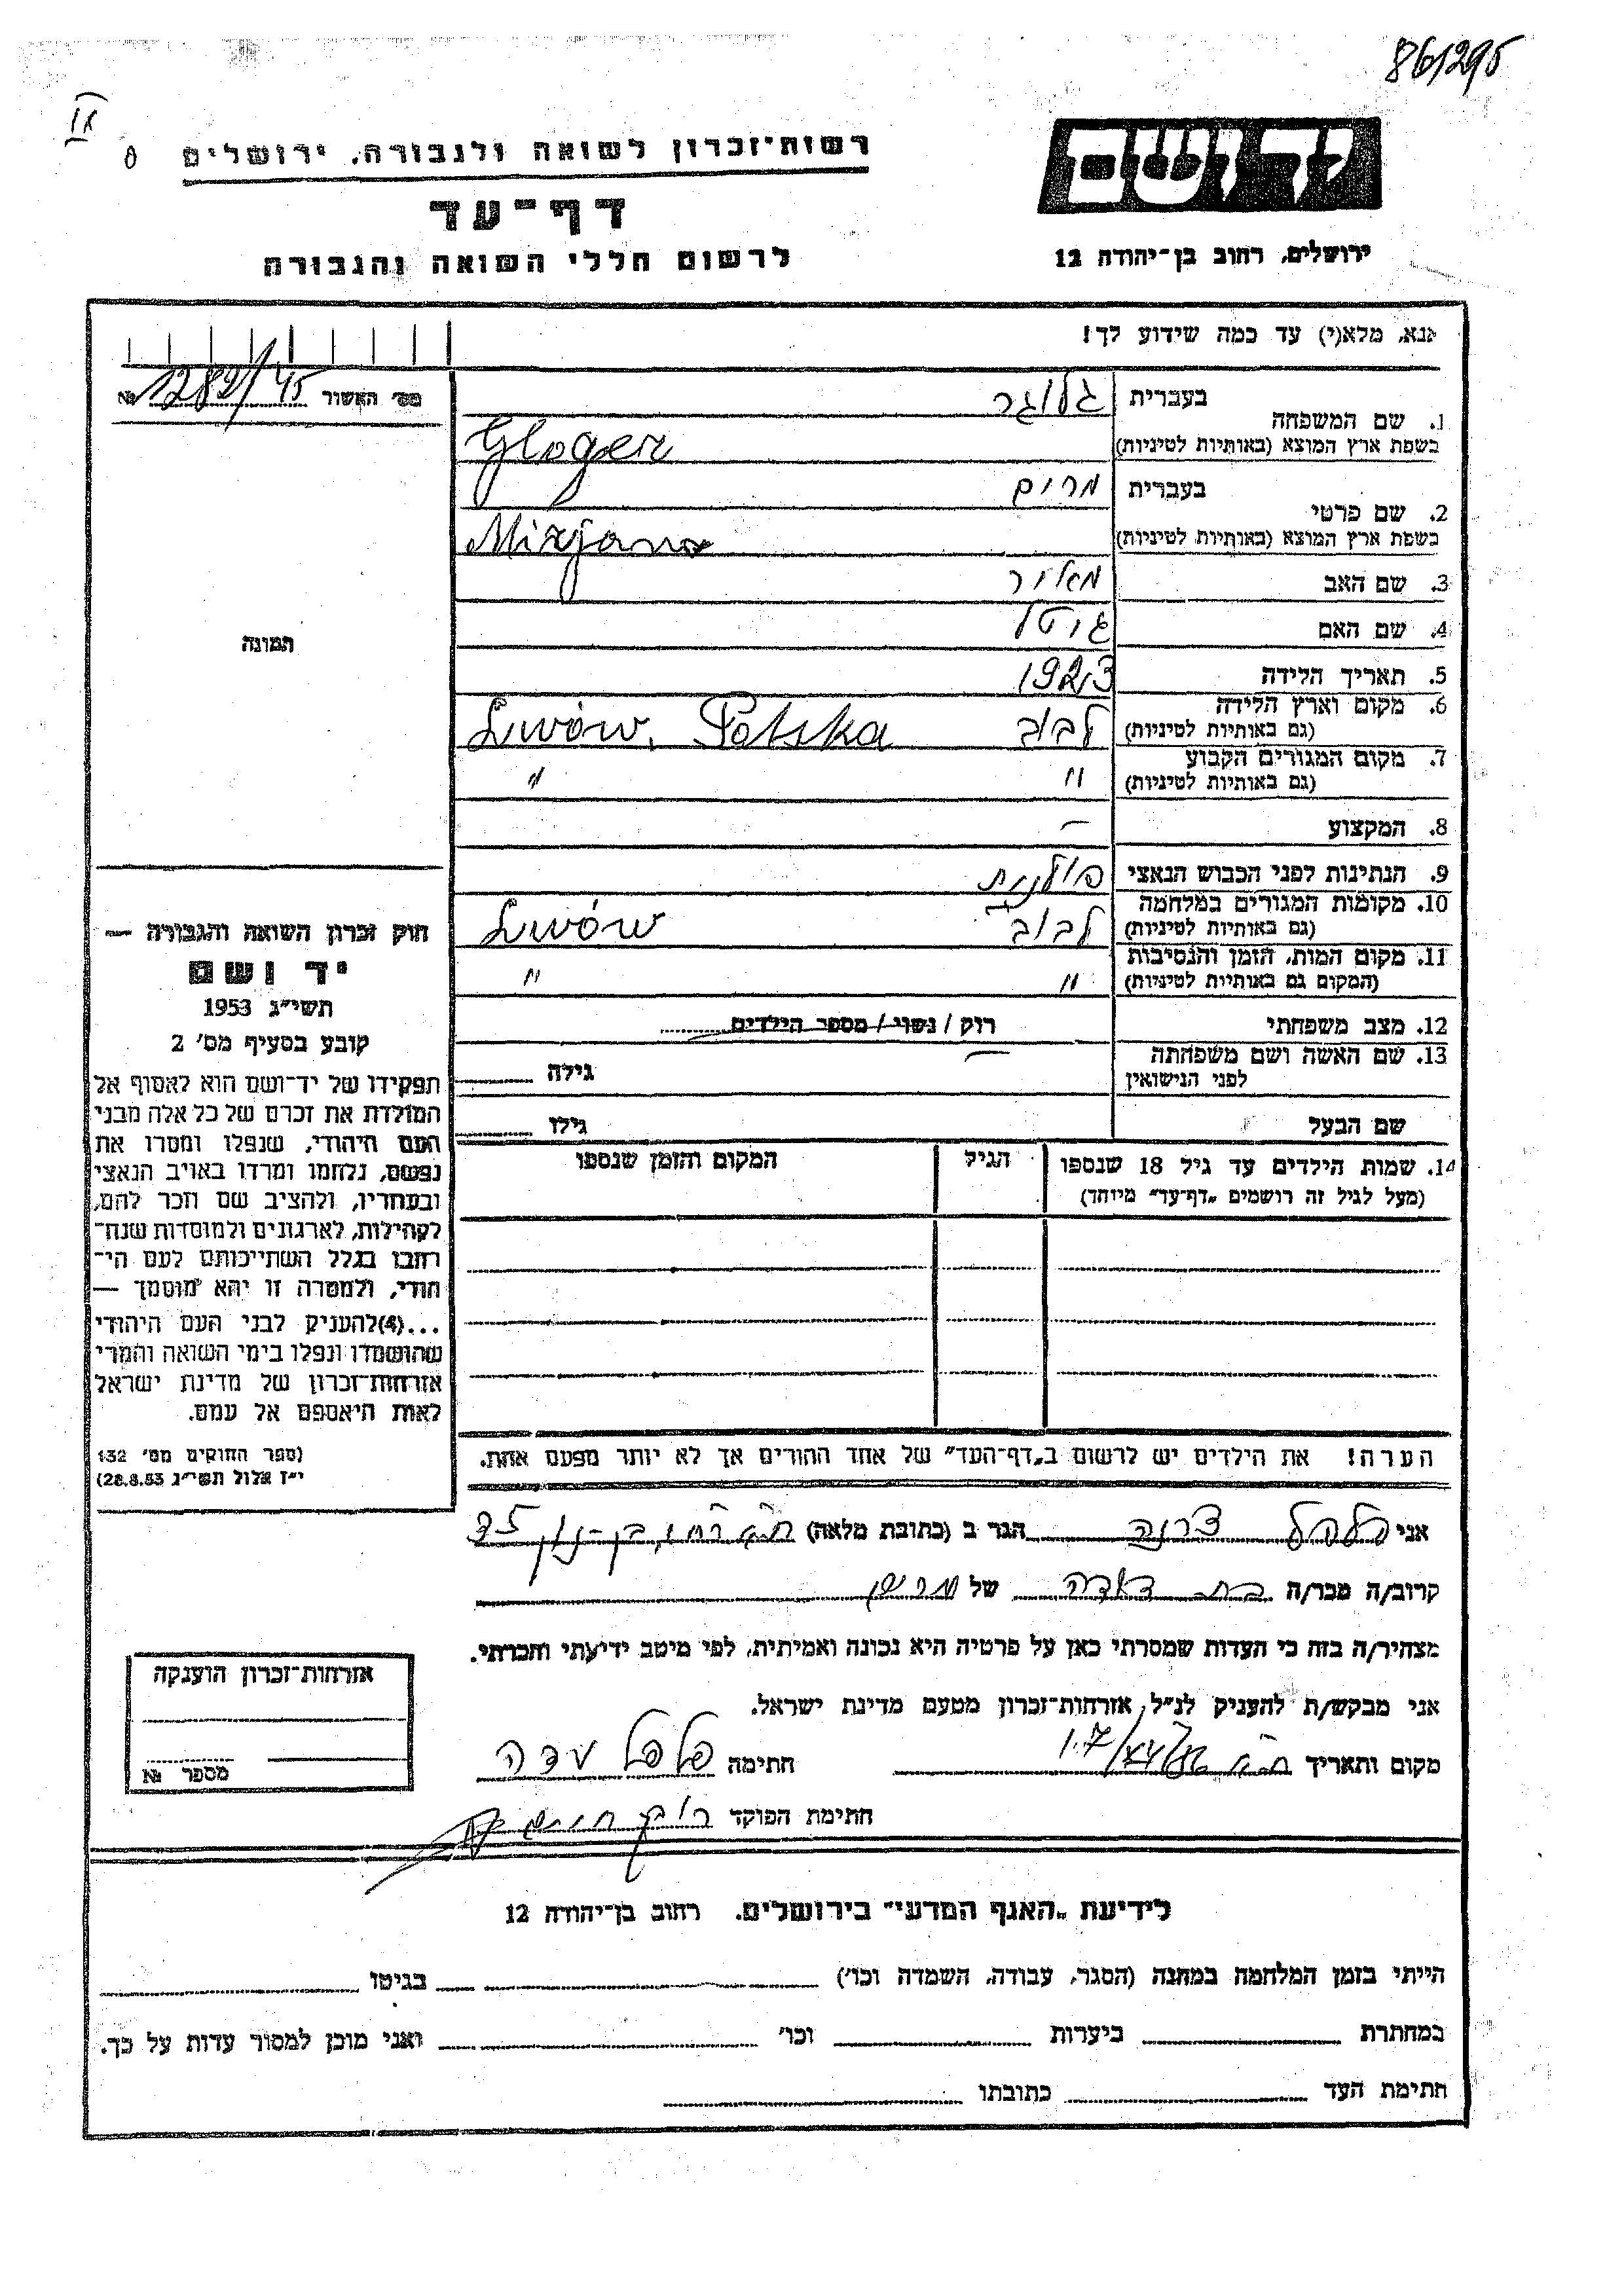 861295
IX
רשות־זכרון לשואה ולגבורה, ירושלים
דף־עד
לרשום חללי השואה והגבורה
יד ושם
ירושלים, רחוב בן־יהודה 12
אנא, מלא(י) עד כמה שידוע לך!
מס׳ האשור 1282/45 №
1. שם המשפחה
בעברית גלוגר
בשפת ארץ המוצא (באותיות לטיניות) Gloger
2. שם פרטי
בעברית מרים
בשפת ארץ המוצא (באותיות לטיניות) Mirjana
3. שם האב מאיר
4. שם האם גיטל
5. תאריך הלידה 1923
6. מקום וארץ הלידה
(גם באותיות לטיניות) לבוב Lwów, Polska
7. מקום המגורים הקבוע
(גם באותיות לטיניות) " "
8. המקצוע –
9. הנתינות לפני הכבוש הנאצי פולנית
10. מקומות המגורים במלחמה
(גם באותיות לטיניות) לבוב Lwów
11. מקום המות, הזמן והנסיבות
(המקום גם באותיות לטיניות) " "
12. מצב משפחתי רוק / נשוי / מספר הילדים
13. שם האשה ושם משפחתה
לפני הנישואין – גילה
שם הבעל גילו
14. שמות הילדים עד גיל 18 שנספו
(מעל לגיל זה רושמים „דף־עד״ מיוחד)
הגיל
המקום והזמן שנספו
הערה! את הילדים יש לרשום ב„דף־העד״ של אחד ההורים אך לא יותר מפעם אחת.
תמונה
חוק זכרון השואה והגבורה —
יד ושם
תשי״ג 1953
קובע בסעיף מס׳ 2
תפקידו של יד־ושם הוא לאסוף אל
המולדת את זכרם של כל אלה מבני
העם היהודי, שנפלו ומסרו את
נפשם, נלחמו ומרדו באויב הנאצי
ובעוזריו, ולהציב שם וזכר להם,
לקהילות, לארגונים ולמוסדות שנח־
רבו בגלל השתייכותם לעם הי־
הודי, ולמטרה זו יהא מוסמך —
...(4)להעניק לבני העם היהודי
שהושמדו ונפלו בימי השואה והמרי
אזרחות־זכרון של מדינת ישראל
לאות היאספם אל עמם.
(ספר החוקים מס׳ 132
י״ז אלול תשי״ג 28.8.53)
אני הגר ב (כתובת מלאה)
קרוב/ה מכר/ה בת דודה של מרים
מצהיר/ה בזה כי העדות שמסרתי כאן על פרטיה היא נכונה ואמיתית, לפי מיטב ידיעתי והכרתי.
אני מבקש/ת להעניק לנ״ל, אזרחות־זכרון מטעם מדינת ישראל.
מקום ותאריך חתימה
חתימת הפוקד
אזרחות־זכרון הוענקה
מספר №
לידיעת „האגף המדעי״ בירושלים. רחוב בן־יהודה 12
הייתי בזמן המלחמה במחנה (הסגר, עבודה, השמדה וכו׳) בגיטו
במחתרת ביערות וכו׳ ואני מוכן למסור עדות על כך.
חתימת העד כתובתו